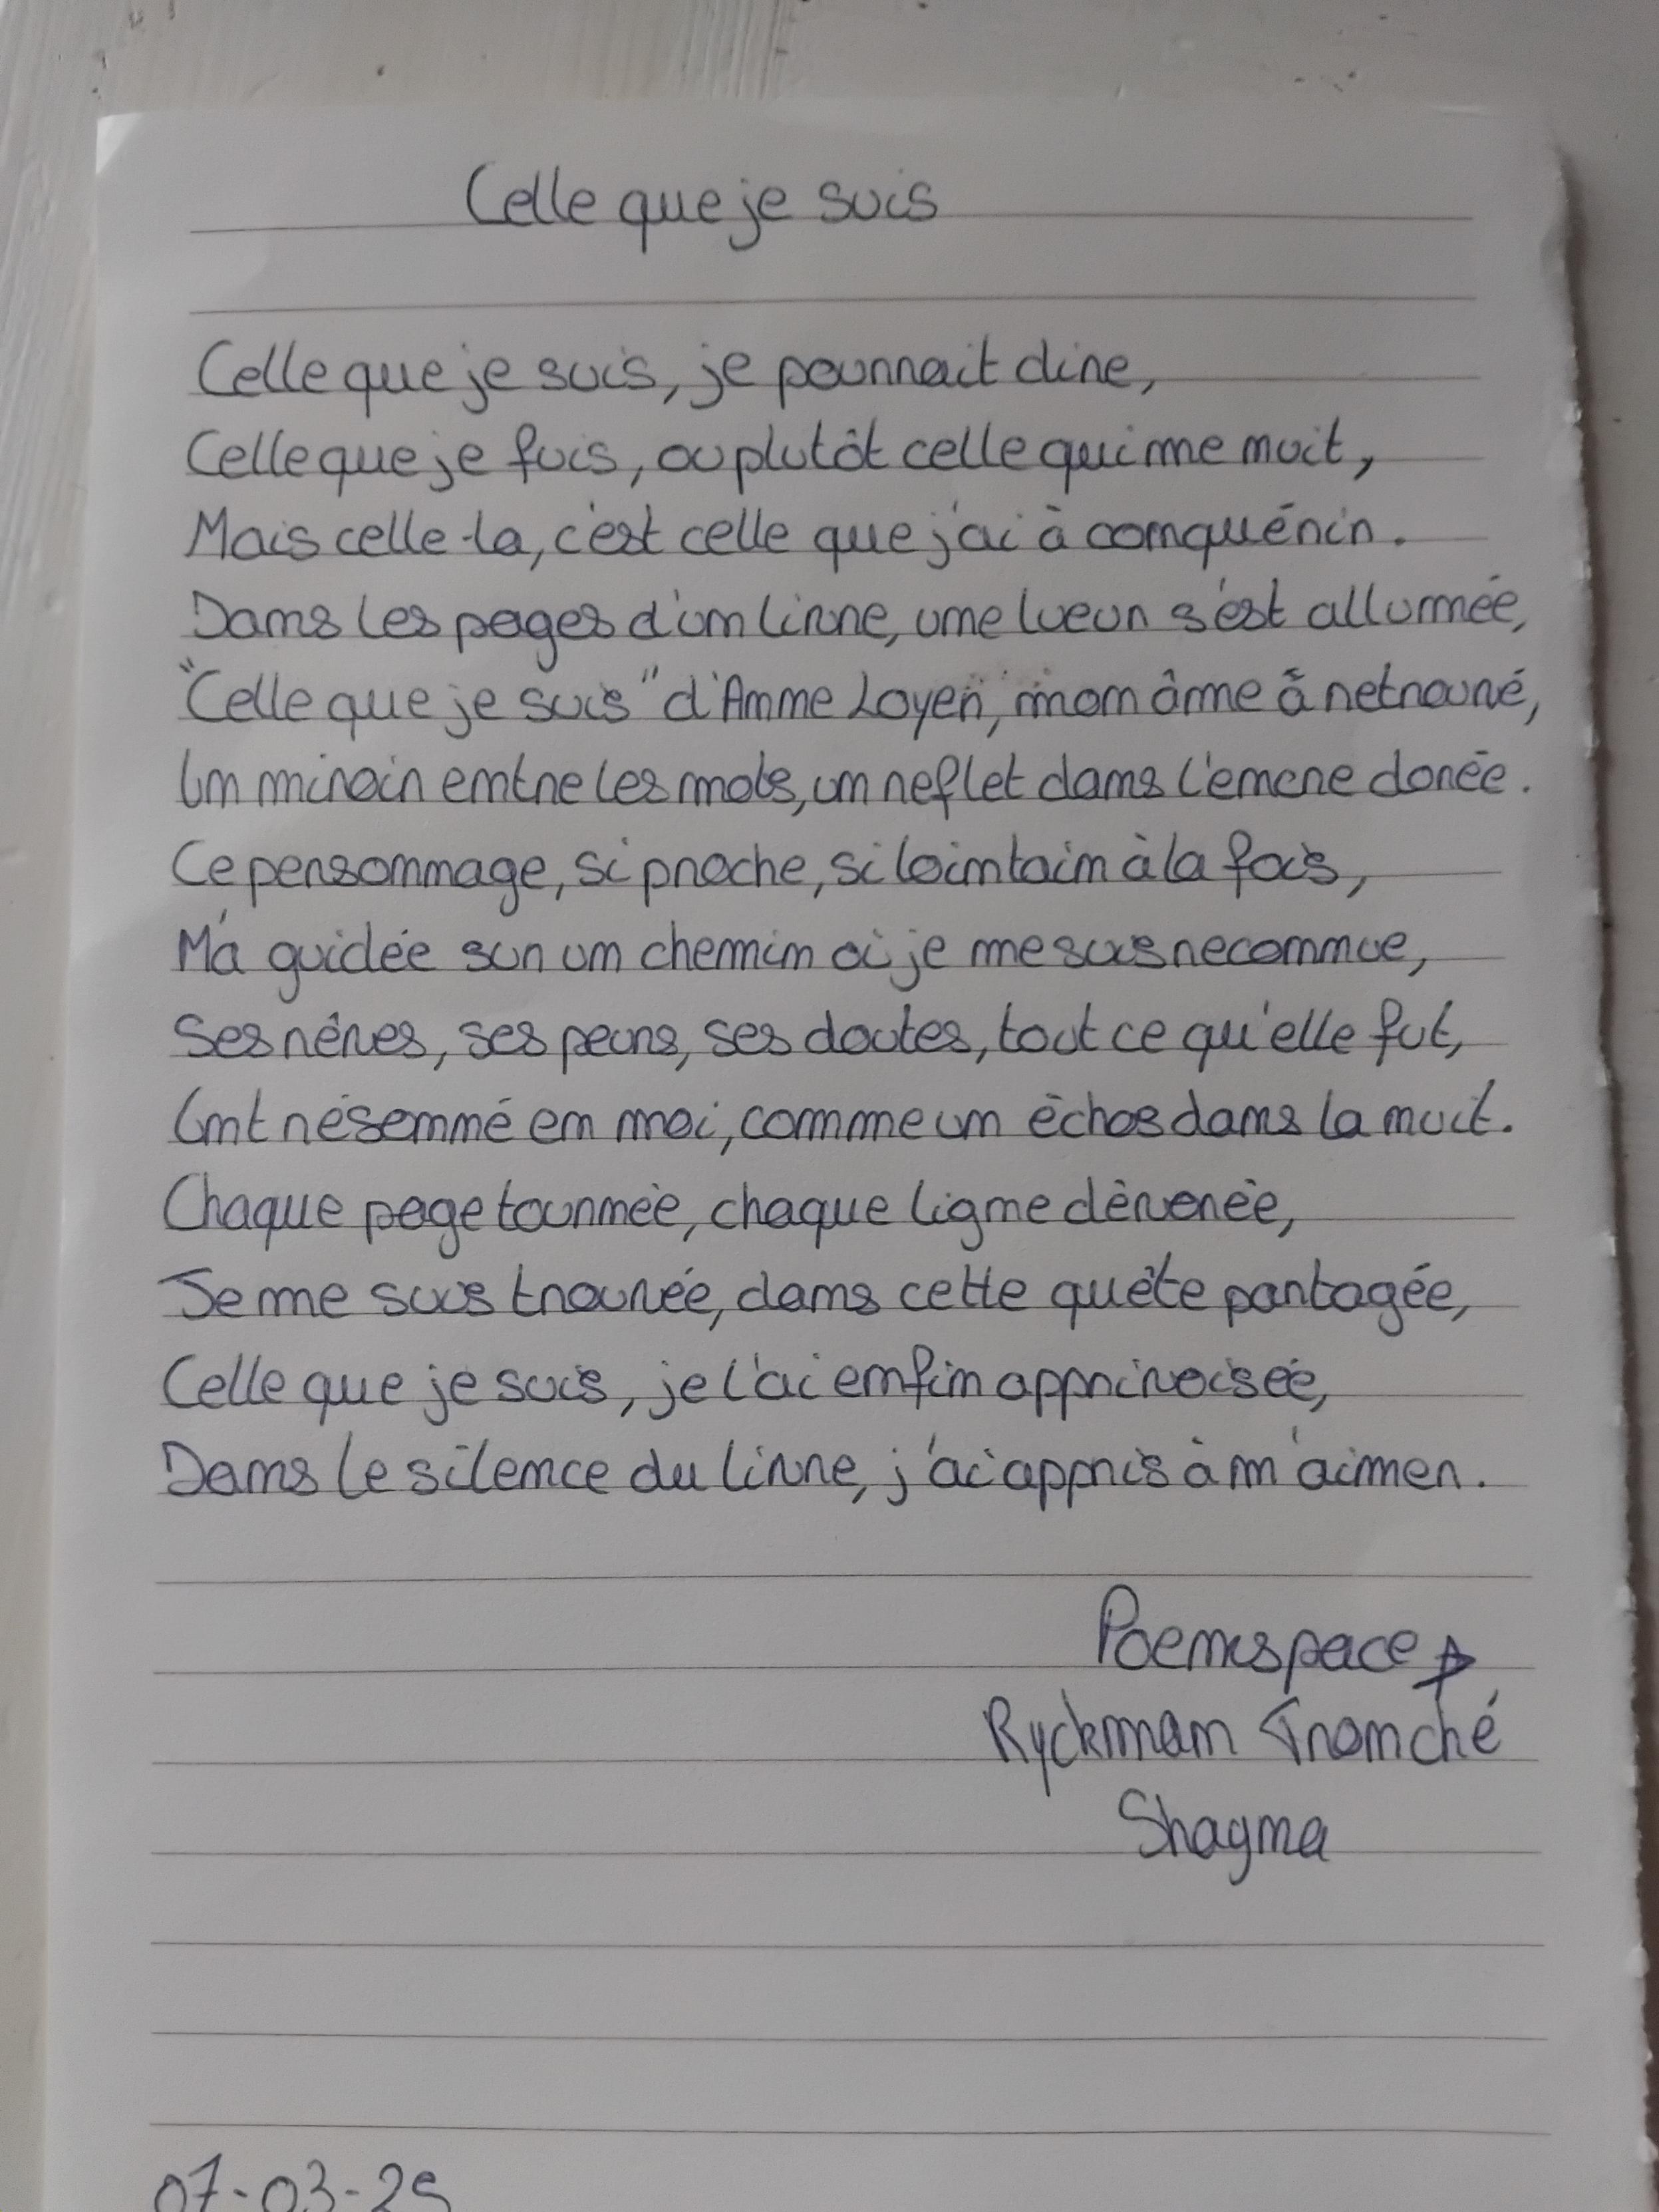 Celle que je suis
Celle que je suis, je pourrait dire,
Celle que je fuis, ou plutôt celle qui me nuit,
Mais celle-la, c'est celle que j'ai à conquérir.
Dans les pages d'un livre, une lueur s'est allumée,
"Celle que je suis" d'Anne Loyer, mon âme à retrouvé,
Un miroir entre les mots, un reflet dans l'encre dorée.
Ce personnage, si proche, si lointain à la fois,
M'a guidée sur un chemin où je me suis reconnue,
Ses rêves, ses peurs, ses doutes, tout ce qu'elle fut,
Ont résonné en moi, comme un échos dans la nuit.
Chaque page tournée, chaque ligne dévorée,
Je me suis trouvée, dans cette quête partagée,
Celle que je suis, je l'ai enfin apprivoisée,
Dans le silence du livre, j'ai appris à m'aimer.
Poemspace
Ryckman Tranché
Shayna
07-03-25